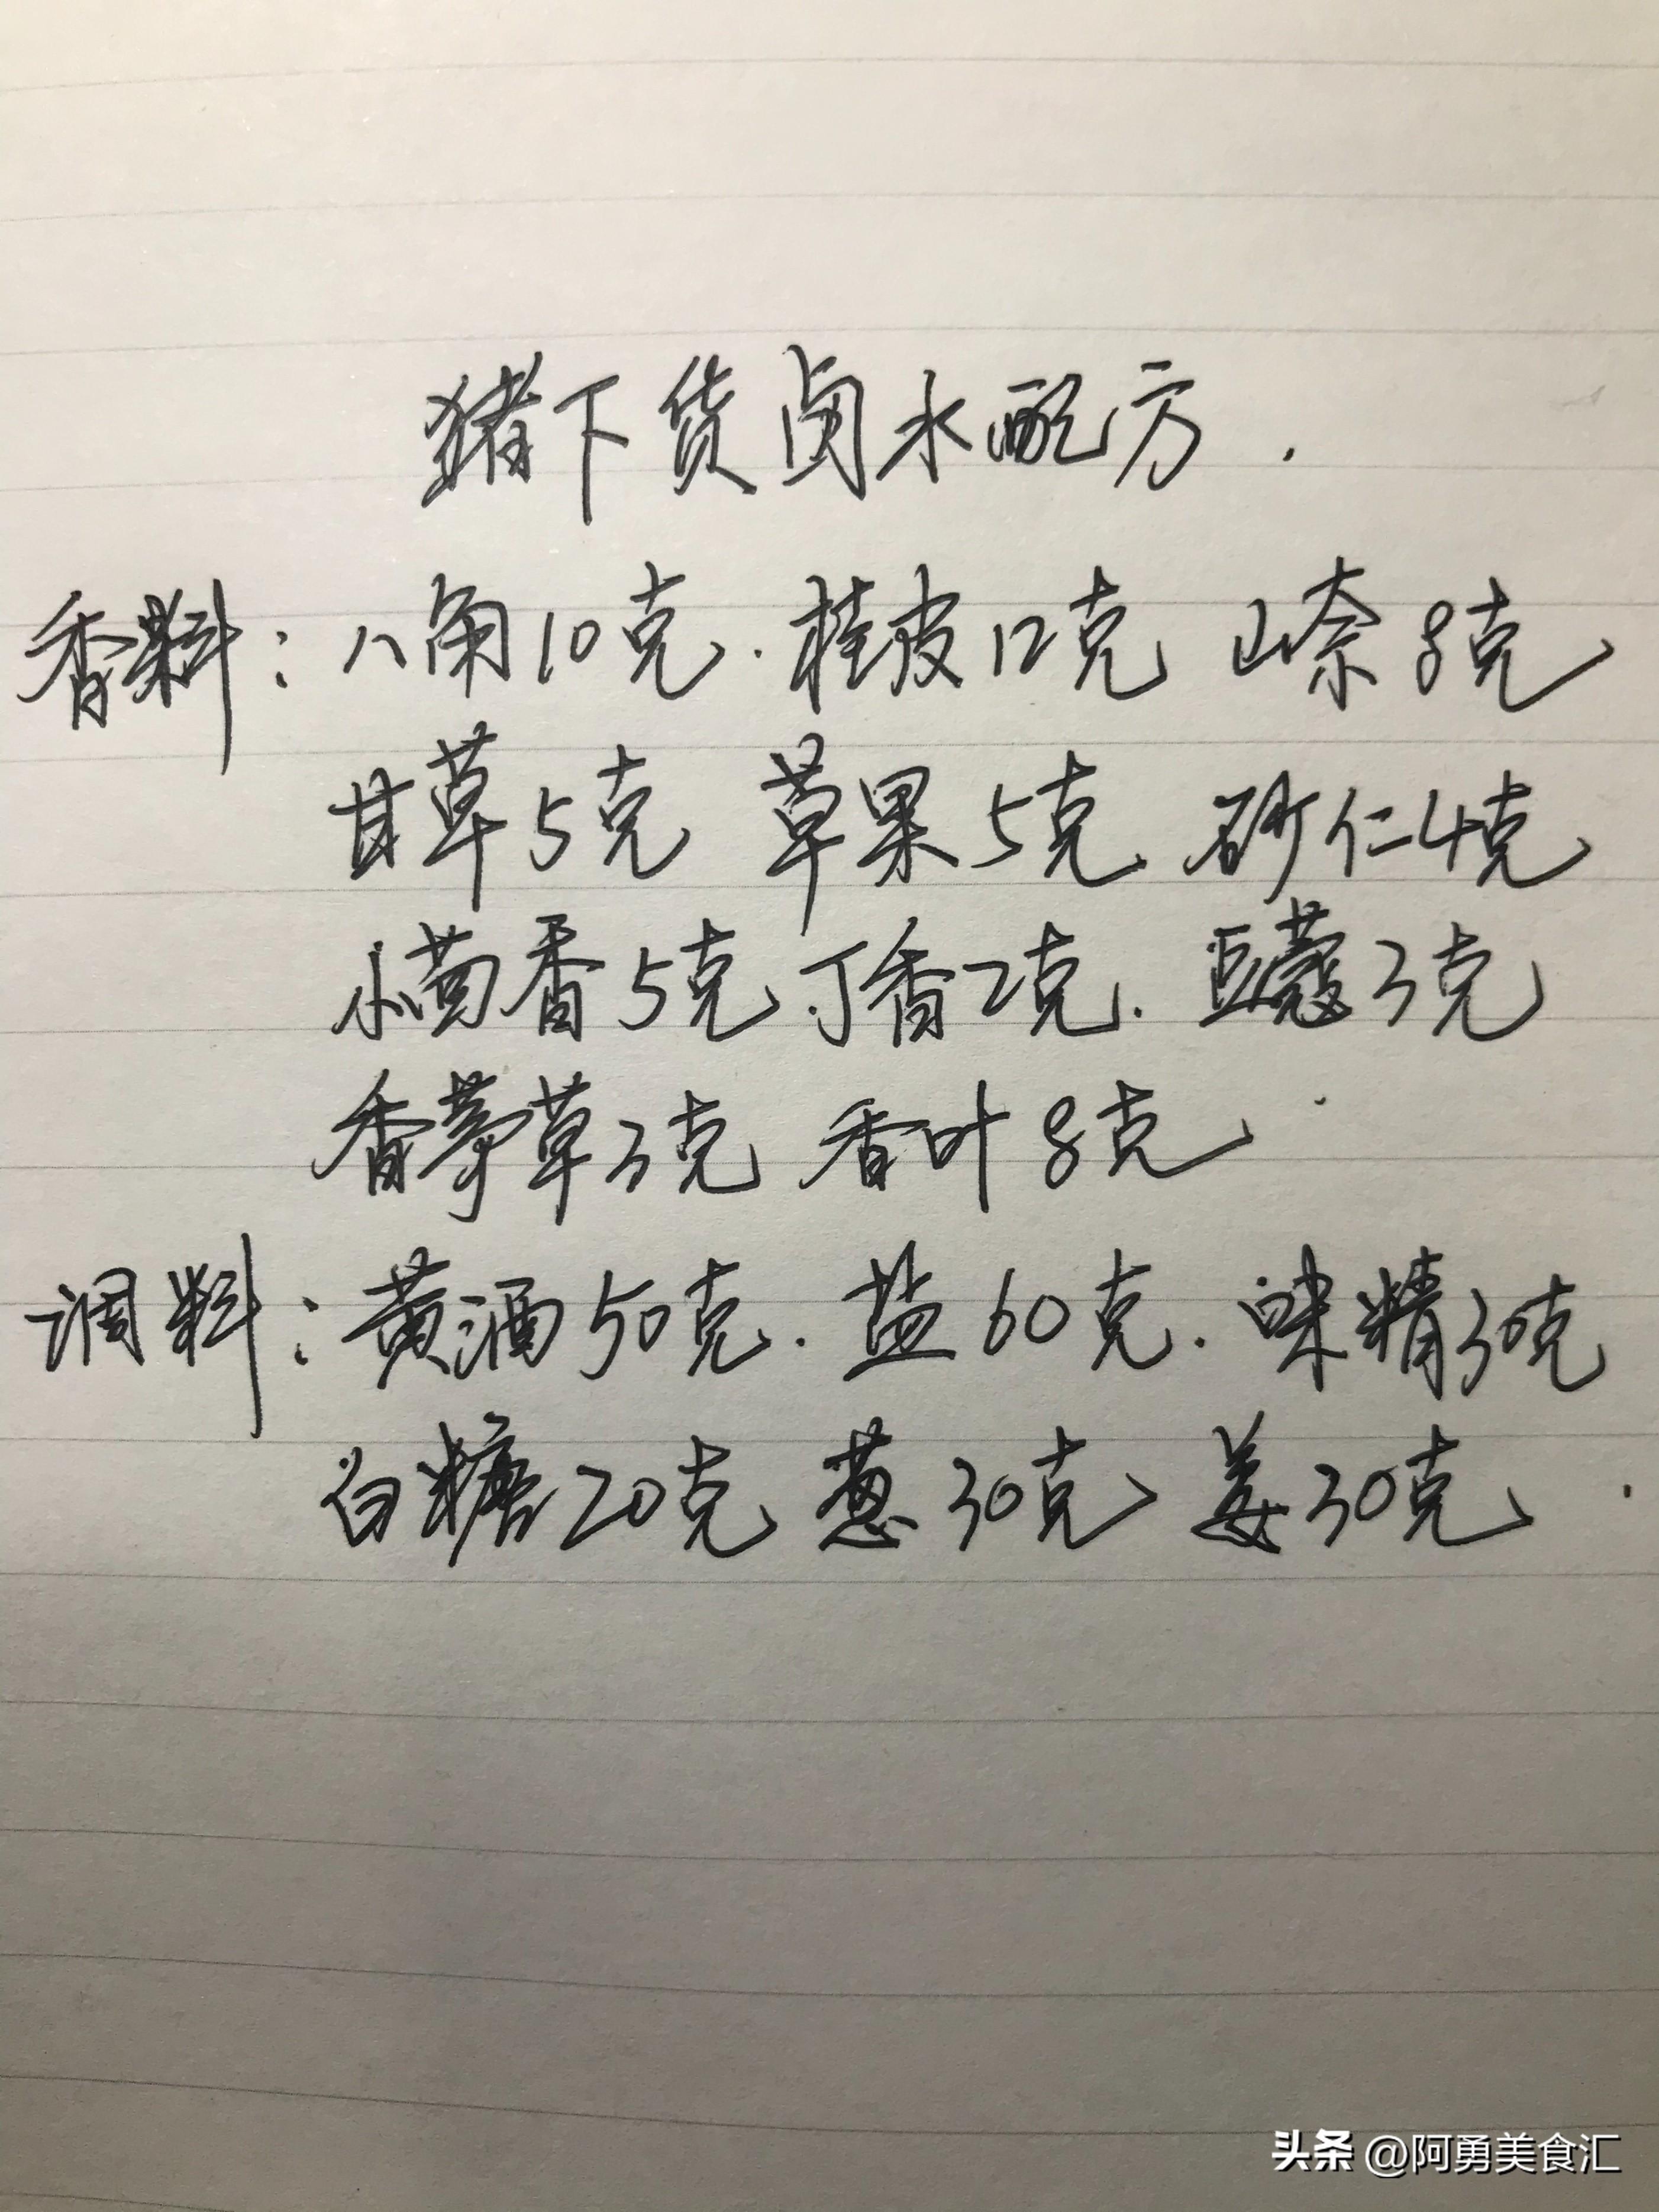 猪下货卤水配方.
香料:八角10克.桂皮12克 山奈8克
甘草5克 草果5克.砂仁4克
小茴香5克.丁香2克.豆蔻3克
香茅草3克 香叶8克
调料:黄酒50克.盐60克.味精30克
白糖20克 葱30克 姜30克.
头条 @阿勇美食汇